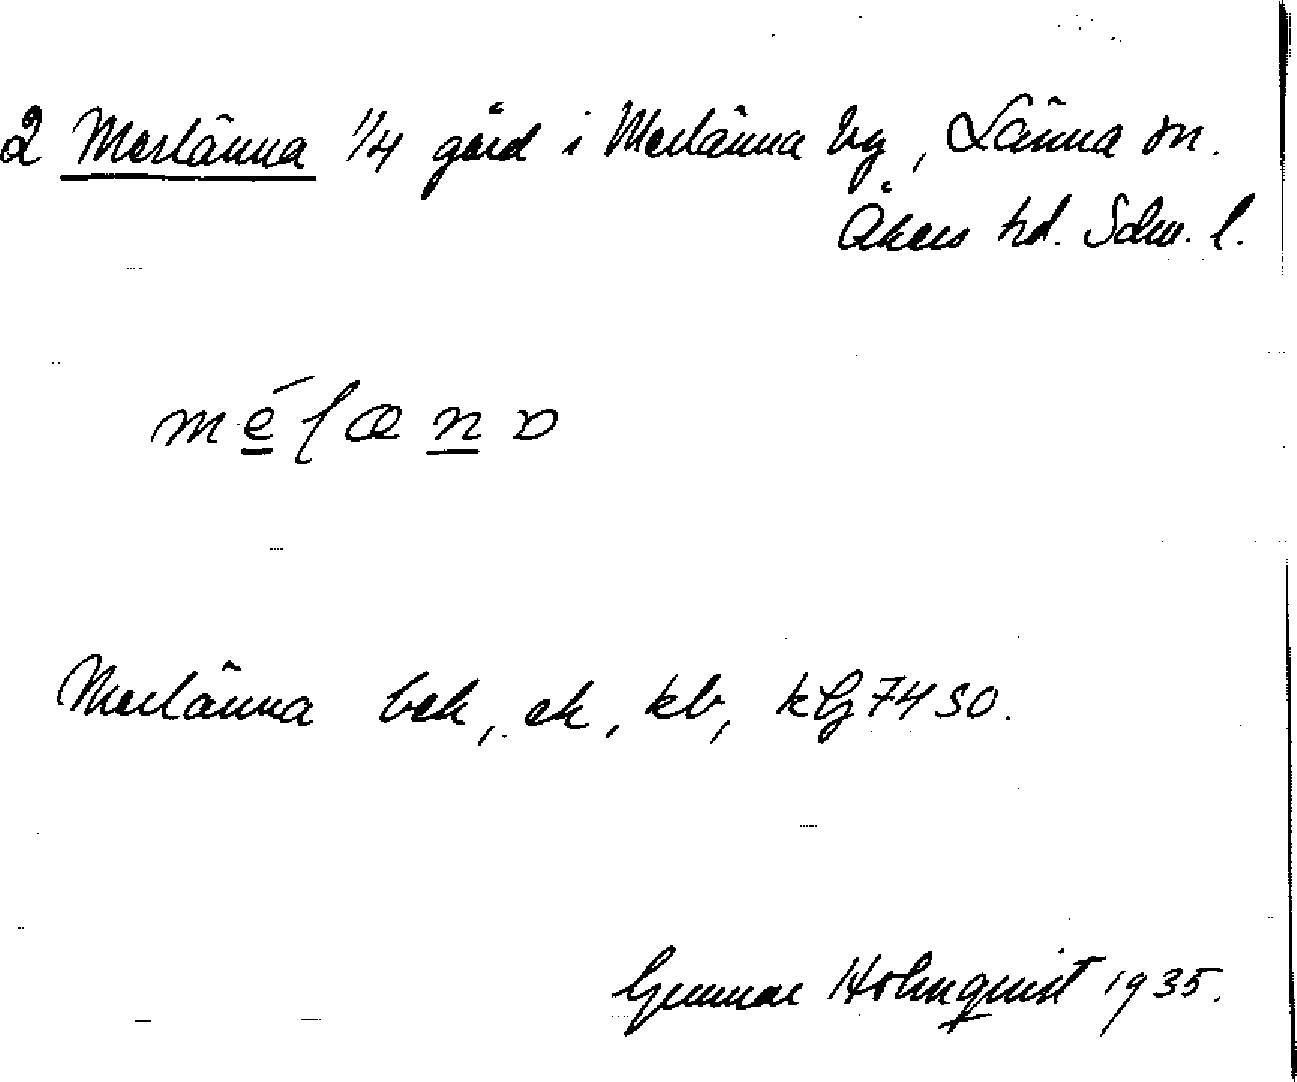 2 Merlänna 1/4 gård i Merlänna by, Länna sn.
Åkers hd. Sdm. l.
méʃænɒ
Merlänna bek, ek, kb, kG 74 SO.
Gunnar Holmquist 1935.